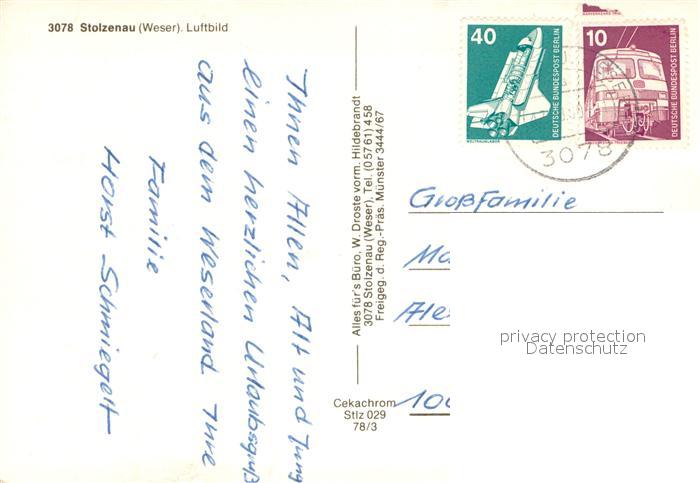 3078 Stolzenau (Weser). Luftbild
Ihnen Allen, Alt und Jung
einen herzlichen Urlaubsgruß
aus dem Weserland Ihre
Familie
Horst Schmiegelt
Alles für's Büro, W. Droste vorm. Hildebrandt
3078 Stolzenau (Weser), Tel. (05761) 458
Freigeg. d. Reg.-Präs. Münster 3444/67
Cekachrom
Stlz 029
78/3
40
DEUTSCHE BUNDESPOST BERLIN
WELTRAUMLABOR
10
DEUTSCHE BUNDESPOST BERLIN
3078
Großfamilie
Ma
Ale
100
privacy protection
Datenschutz